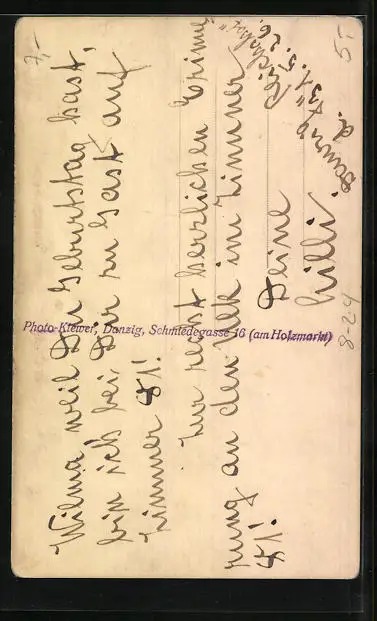 Wilma weil Du Geburtstag hast,
bin ich bei Dir zu Gast auf
Zimmer 81!
Zur recht herzlichen Erinne
rung an den Ulk im Zimmer
81!
Deine
Lilli.
Danzig d. 31. 5. 26.
Photo-Kiewer, Danzig, Schmiedegasse 16 (am Holzmarkt)
7,-
8-24